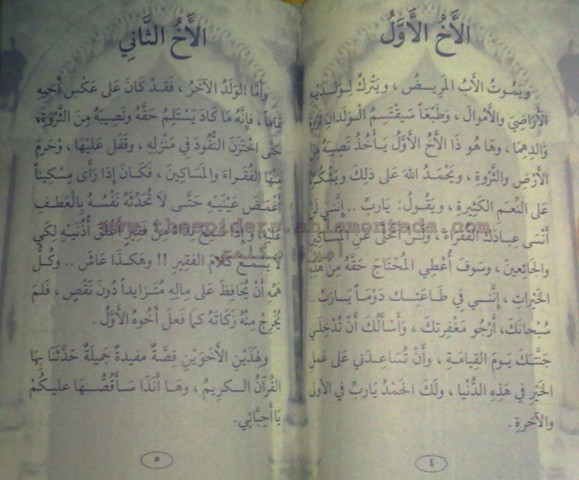 الأَخُ الأَوَّلُ
ويَموتُ الأَبُ المَريضُ ، ويَتْرِكُ لِوَلدَيْهِ
الأَرَاضِيَ والأَمْوالَ ، وَطَبْعَاً سَيَقْتَسِمُ الوَلَدانِ
وَالدِهِمَا ، وهَا هُوَ ذَا الأَخُ الأَوَّلُ يَأخُذُ نَصِيبَهُ
الأَرْضِ والثَّرْوَةِ ، ويَحْمَدُ اللهَ عَلى ذلِكَ ويَشْكُرُهُ
عَلى النِّعَمِ الكَثِيرَةِ ، ويَقُولُ: يَارَبِّ .. إِنَّنِي لَنْ
أَنْسَى عِبادَكَ الفُقَراءَ ، ولَنْ أَتَخَلَّى عَنِ المَسَاكِينِ
والجَائِعينَ ، وسَوفَ أُعْطِي المُحْتَاجَ حَقَّهُ مِن هَذِهِ
الخَيْراتِ ، إِنَّنِي في طَاعَتِكَ دَوْمَاً يَارَبُّ .
سُبْحَانَكَ، أَرْجُو مَغْفِرتَكَ ، وَأَسْأَلُكَ أَنْ تُدْخِلَني
جَنَّتَكَ يَومَ القِيَامَةِ ، وأَنْ تُسَاعِدَني عَلى عَمَلِ
الخَيْرِ في هَذِهِ الدُّنْيا ، ولَكَ الحَمْدُ يَارَبِّ في الأُولَى
والآخِرةِ .
٤
الأَخُ الثَّانِي
وأَمَّا الوَلَدُ الآخَرُ ، فَقَدْ كَانَ عَلى عَكْسِ أَخِيهِ
تَمَاماً ، فَإِنَّهُ مَا كَادَ يَسْتَلِمُ حَقَّهُ ونَصِيبَهُ مِنَ الثَّرْوَةِ،
حَتَّى اخْتَزَنَ النُّقُودَ في مَنْزِلِهِ ، وقَفَلَ عَلَيْهَا ، وحَرَمَ
مِنْها الفُقَراءَ والمَسَاكِينَ ، فَكَانَ إِذا رَأَى مِسْكِيناً
أَغْمَضَ عَيْنَيْهِ حَتَّى لا تُحَدِّثَهُ نَفْسُهُ بِالعَطْفِ
عَلَيْهِ ، وإِذا سَمِعَ مِنْ فَقِيرٍ أَغْلَقَ أُذُنَيْهِ لِكَي
لا يَسْمَعَ كَلامَ الفَقِيرِ !! وهكَذَا عَاشَ .. وكُلُّ
هَمِّهِ أَنْ يُحَافِظَ عَلى مِالِهِ مُتَزايِداً دُونَ نَقْصٍ ، فَلَمْ
يُخْرِجْ مِنْهُ زَكَاتَهُ كَما فَعَلَ أَخُوهُ الأَوَّلُ .
ولِهَذَينِ الأَخَوَينِ قِصَّةٌ مفيدةٌ جَميلَةٌ حَدَّثَنَا بِهَا
القُرْآنُ الكَرِيمُ ، وهَا أَنَذَا سَأَقُصُّهَا عَلَيكُمْ
يَا أَحِبَّائِي.
٥